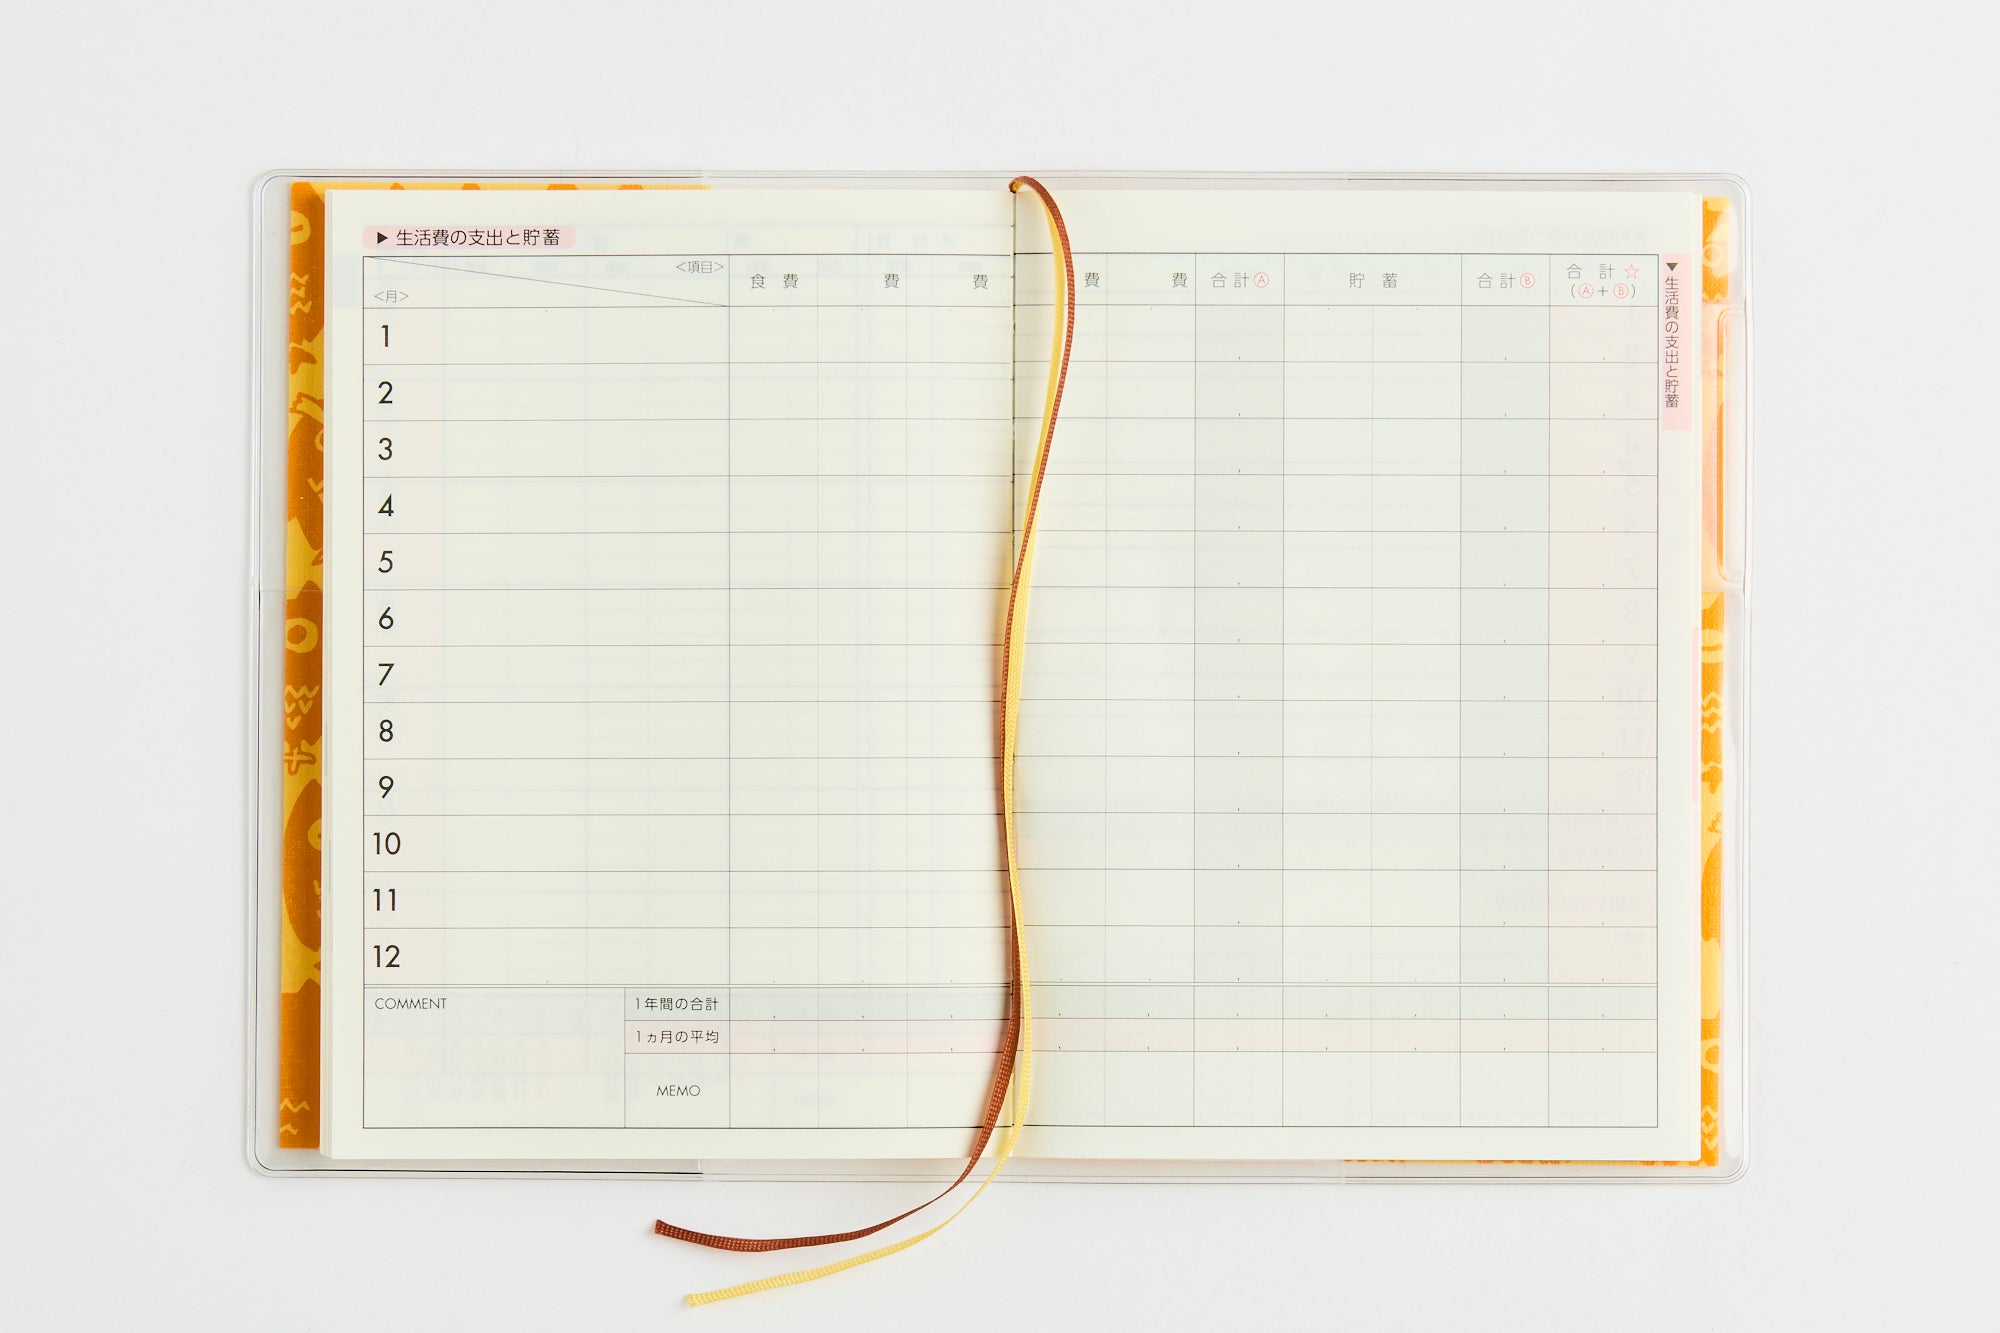 ▶ 生活費の支出と貯蓄
<項目>
<月>
食 費
費
費
費
費
合計Ⓐ
貯 蓄
合計Ⓑ
合 計 ☆
(Ⓐ+Ⓑ)
▼生活費の支出と貯蓄
1
2
3
4
5
6
7
8
9
10
11
12
COMMENT
1年間の合計
1ヵ月の平均
MEMO